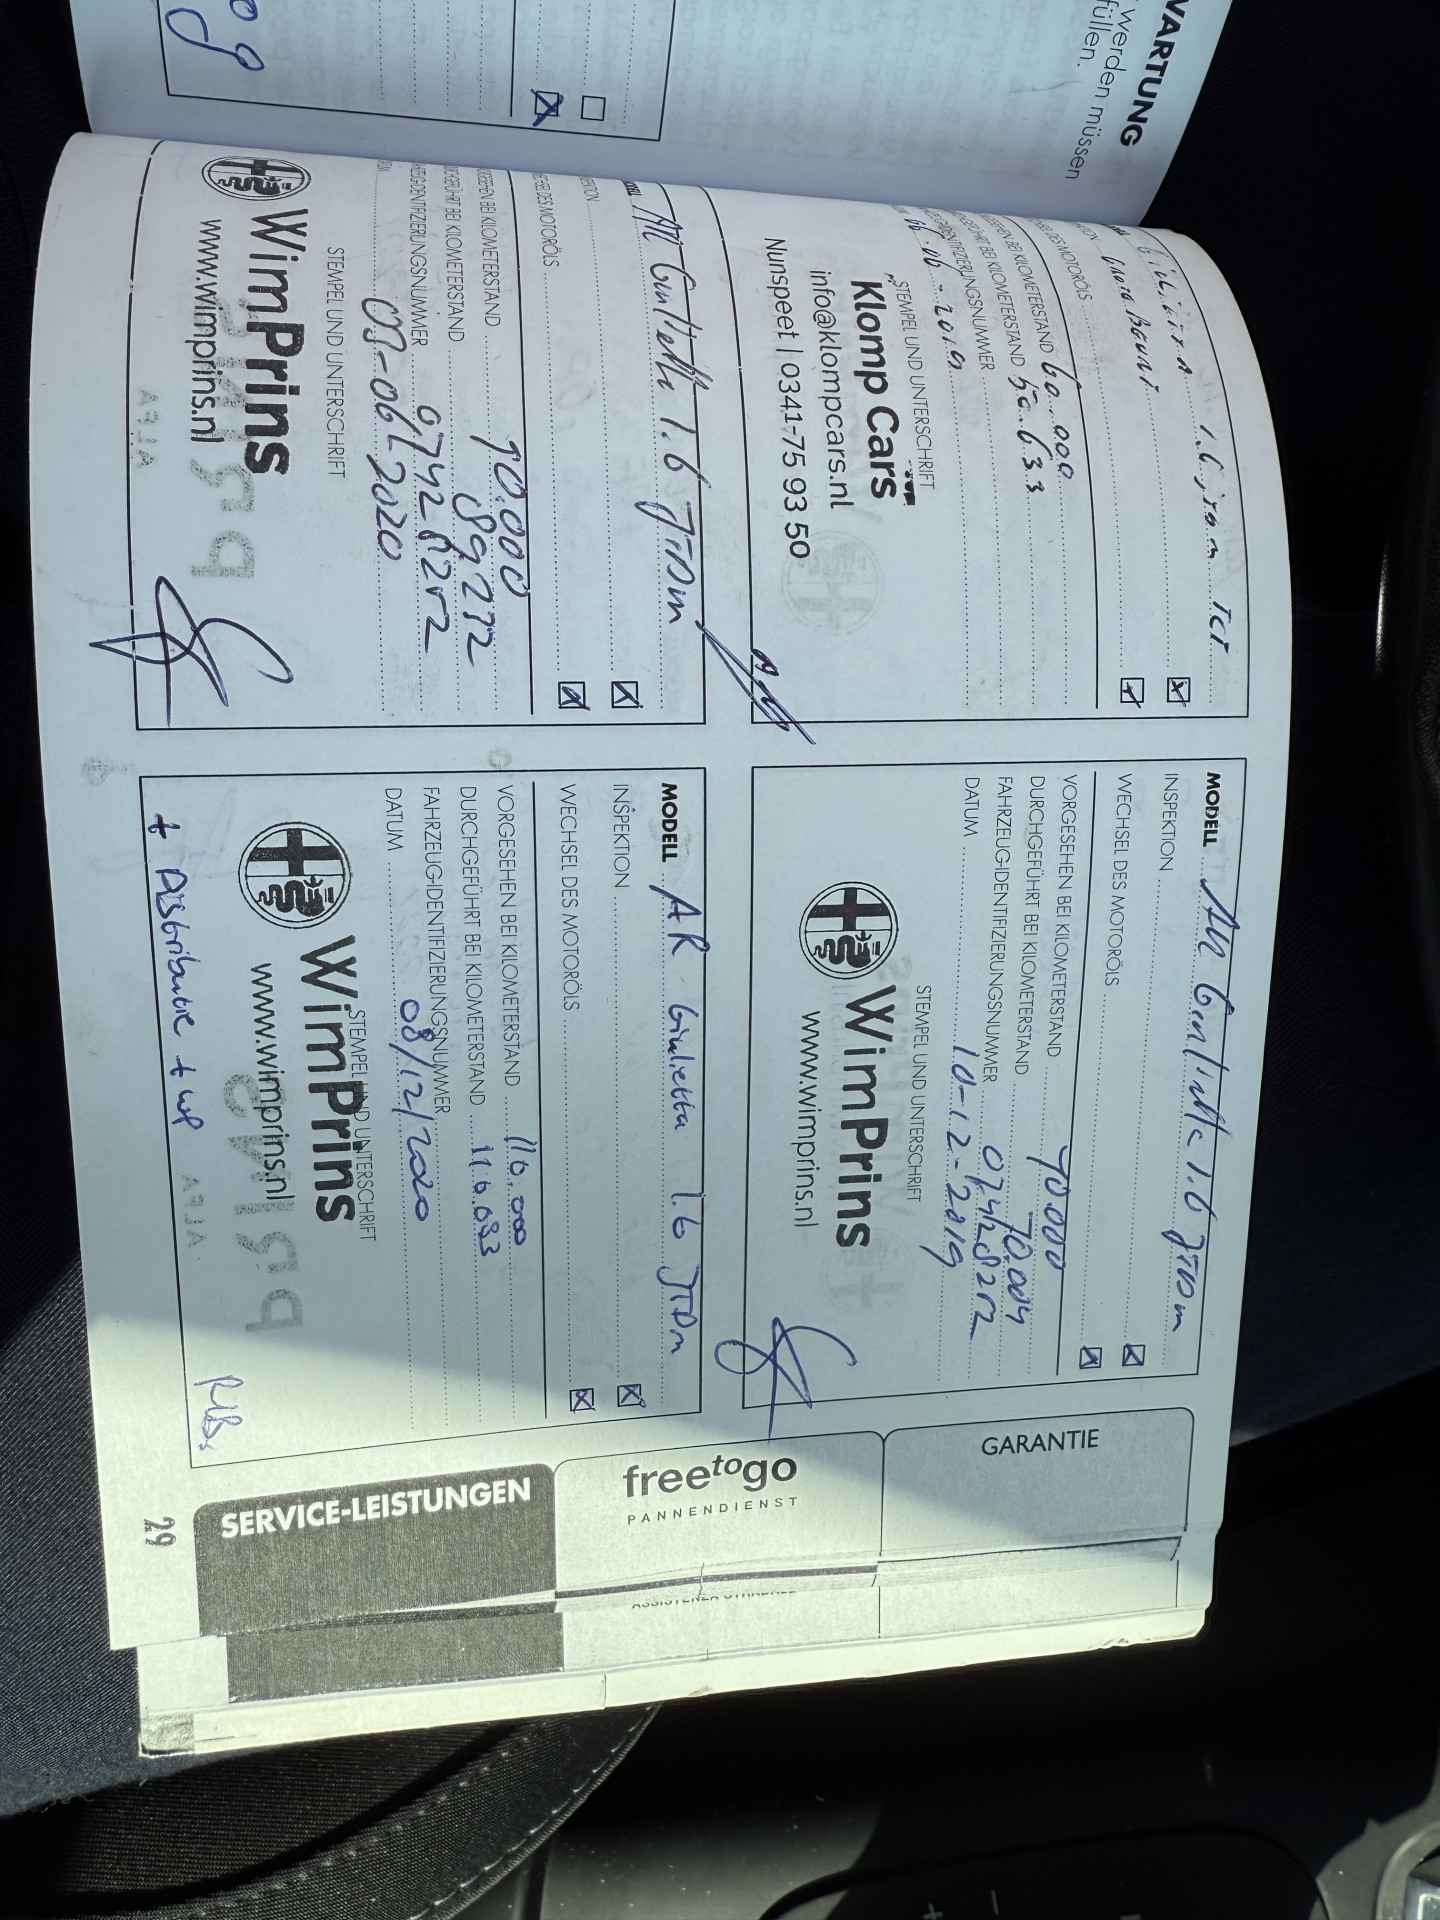 WARTUNG
werden müssen
füllen.
Giulietta 1.6 jtdm TCT
Grote Beurt
SEL DES MOTORÖLS
SEHEN BEI KILOMETERSTAND 60.000
FÜHRT BEI KILOMETERSTAND 50.633
IDENTIFIZIERUNGSNUMMER
06-06-2019
STEMPEL UND UNTERSCHRIFT
Klomp Cars
info@klompcars.nl
Nunspeet | 0341-75 93 50
MODELL AR Giulietta 1.6 JTDm
INSPEKTION
WECHSEL DES MOTORÖLS
VORGESEHEN BEI KILOMETERSTAND 70.000
DURCHGEFÜHRT BEI KILOMETERSTAND 70.004
FAHRZEUG-IDENTIFIZIERUNGSNUMMER
DATUM 10-12-2019
STEMPEL UND UNTERSCHRIFT
WimPrins
www.wimprins.nl
AR Giulietta 1.6 JTDm
DES MOTORÖLS
BEI KILOMETERSTAND 90.000
BEI KILOMETERSTAND 89272
IDENTIFIZIERUNGSNUMMER
03-06-2020
STEMPEL UND UNTERSCHRIFT
WimPrins
www.wimprins.nl
MODELL AR Giulietta 1.6 JTDm
INSPEKTION
WECHSEL DES MOTORÖLS
VORGESEHEN BEI KILOMETERSTAND 110.000
DURCHGEFÜHRT BEI KILOMETERSTAND 110.093
FAHRZEUG-IDENTIFIZIERUNGSNUMMER
DATUM 08/12/2020
STEMPEL UND UNTERSCHRIFT
WimPrins
www.wimprins.nl
+ Distributie + wp
GARANTIE
freetogo
PANNENDIENST
SERVICE-LEISTUNGEN
29